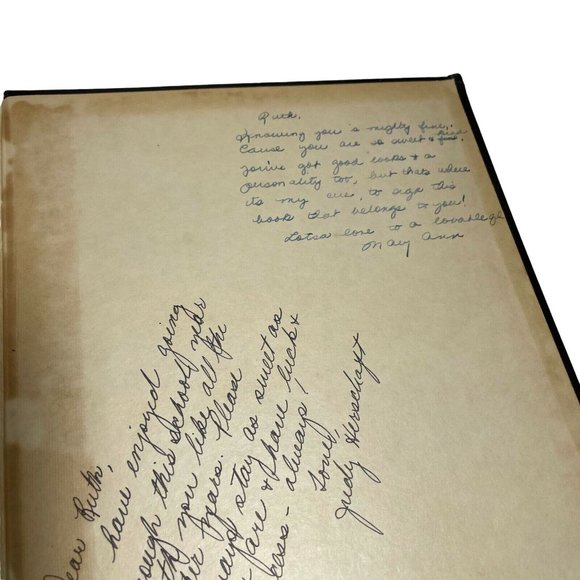 Ruth,
Knowing you is mighty fine,
Cause you are so sweet & kind
you've got good looks & a
personality too, but thats where
its my cue, to sign this
book that belongs to you!
Lotsa love to a lovable gl
Mary Ann
ear Ruth,
have enjoyed going
rough this school year
th you like all the
er years. Please
ways stay as sweet as
are & have luck &
ess - always,
Love,
Judy Herschaft